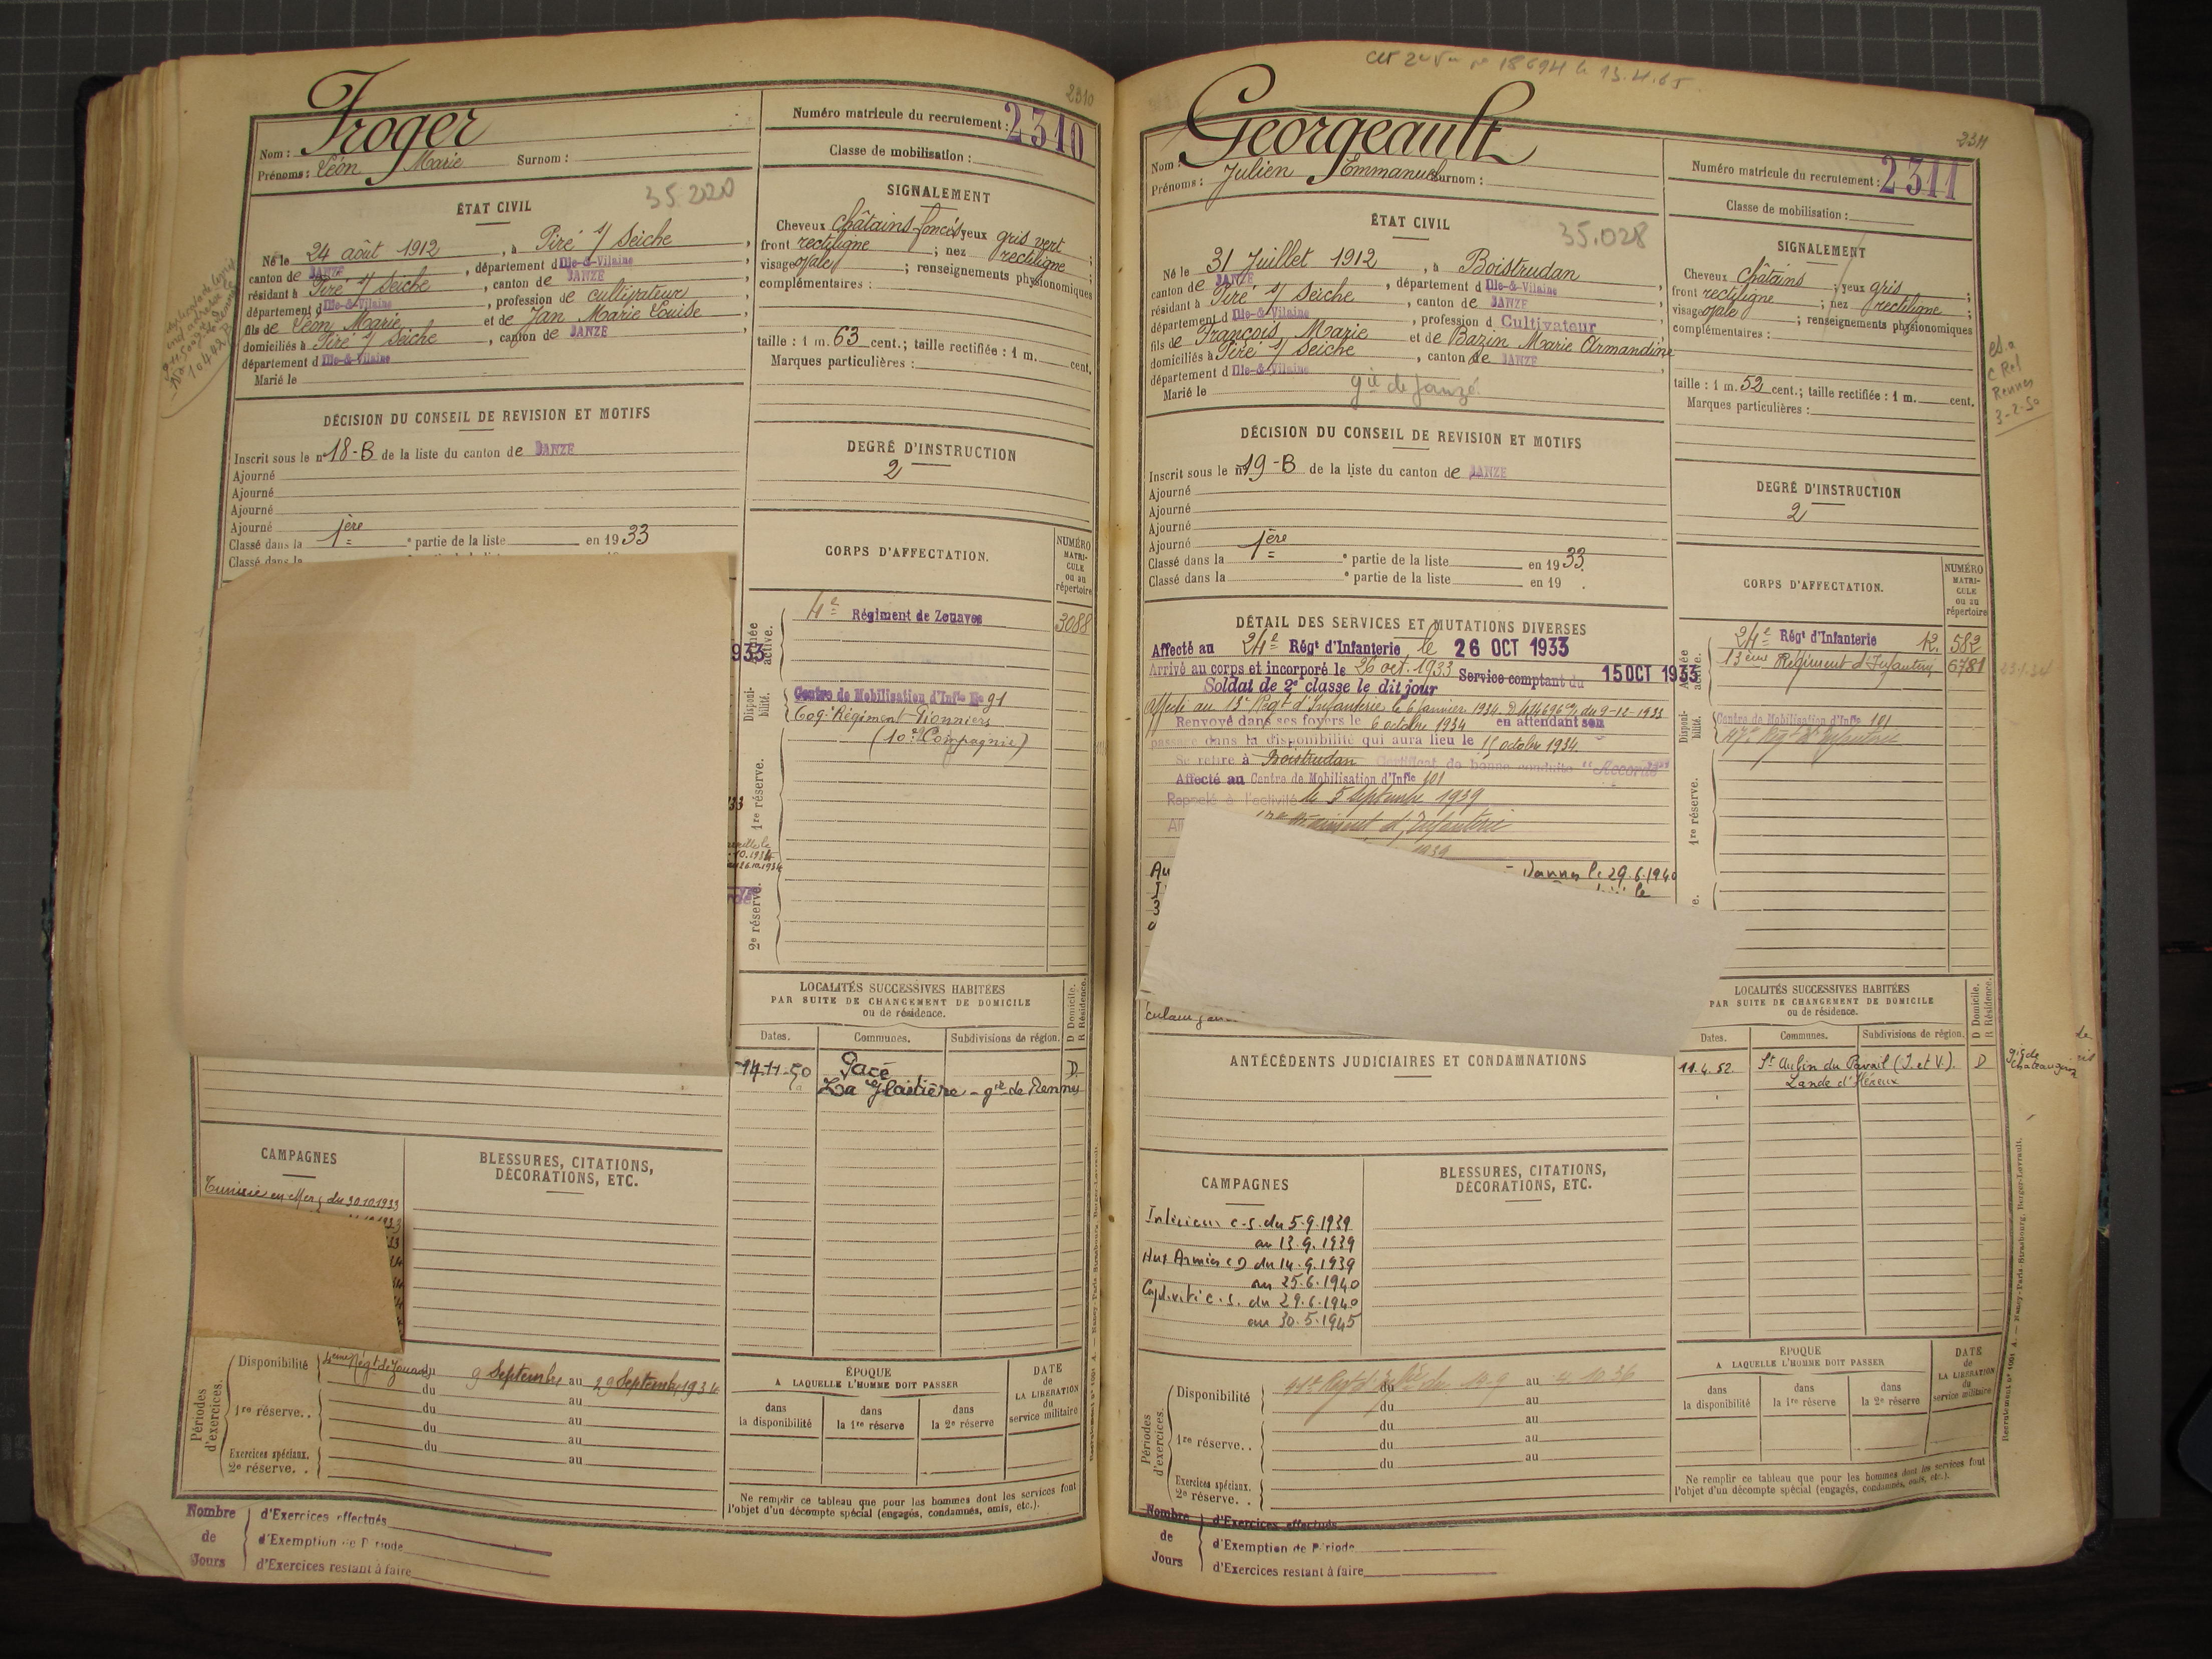 2310
Froger
Nom :
Prénoms : Léon Marie Surnom :
Numéro matricule du recrutement : 2310
Classe de mobilisation :
35.220
ÉTAT CIVIL
Né le 24 août 1912, à Piré s/ Seiche,
canton de JANZE, département d Ille-&-Vilaine
résidant à Piré s/ Seiche, canton de JANZE
département d Ille-&-Vilaine, profession de cultivateur
fils de Léon Marie et de Jan Marie Louise
domiciliés à Piré s/ Seiche, canton de JANZE
département d Ille-&-Vilaine
Marié le
SIGNALEMENT
Cheveux châtains foncés yeux gris vert
front rectiligne ; nez rectiligne ;
visage ovale ; renseignements physionomiques
complémentaires :
taille : 1 m. 63 cent.; taille rectifiée : 1 m. cent.
Marques particulières :
DÉCISION DU CONSEIL DE REVISION ET MOTIFS
Inscrit sous le n° 18-B de la liste du canton de JANZE
Ajourné
Ajourné
Ajourné
Ajourné
Classé dans la 1ère partie de la liste en 1933
Classé dans la
DEGRÉ D'INSTRUCTION
2
CORPS D'AFFECTATION.
NUMÉRO MATRICULE ou au répertoire
Armée active.
4e Régiment de Zouaves 3088
Disponibilité.
Centre de Mobilisation d'Infie No 91
609e Régiment Pionniers
(10e Compagnie)
1re réserve.
2e réserve.
LOCALITÉS SUCCESSIVES HABITÉES
PAR SUITE DE CHANGEMENT DE DOMICILE
ou de résidence.
D Domicile.
R Résidence.
Dates. Communes. Subdivisions de région.
14-11-50 Pacé D.
La Glaitière - gie de Rennes
CAMPAGNES
Tunisie en Mer du 30.10.1933
BLESSURES, CITATIONS,
DÉCORATIONS, ETC.
Périodes d'exercices.
Disponibilité 4ème Régt de Zouaves du 9 Septembre au 29 Septembre 1936
du au
1re réserve. . du au
du au
Exercices spéciaux.
2e réserve. . du au
ÉPOQUE
A LAQUELLE L'HOMME DOIT PASSER
dans la disponibilité
dans la 1re réserve
dans la 2e réserve
DATE de LA LIBÉRATION du service militaire
Ne remplir ce tableau que pour les hommes dont les services font
l'objet d'un décompte spécial (engagés, condamnés, omis, etc.).
Nombre de Jours
d'Exercices effectués
d'Exemption de Période
d'Exercices restant à faire
2311
Georgeault
Nom :
Prénoms : Julien Emmanuel Surnom :
Numéro matricule du recrutement : 2311
Classe de mobilisation :
35.028
ÉTAT CIVIL
Né le 31 Juillet 1912, à Boistrudan
canton de JANZE, département d Ille-&-Vilaine
résidant à Piré s/ Seiche, canton de JANZE
département d Ille-&-Vilaine, profession d Cultivateur
fils de François Marie et de Bazin Marie Armandine
domiciliés à Piré s/ Seiche, canton de JANZE
département d Ille-&-Vilaine
Marié le
gie de Janzé.
SIGNALEMENT
Cheveux châtains ; yeux gris ;
front rectiligne ; nez rectiligne ;
visage ovale ; renseignements physionomiques
complémentaires :
taille : 1 m. 52 cent.; taille rectifiée : 1 m. cent.
Marques particulières :
C Rel
Rennes
3-2-50
DÉCISION DU CONSEIL DE REVISION ET MOTIFS
Inscrit sous le n° 19-B de la liste du canton de JANZE
Ajourné
Ajourné
Ajourné
Ajourné
Classé dans la 1ère partie de la liste en 1933.
Classé dans la partie de la liste en 19 .
DEGRÉ D'INSTRUCTION
2
DÉTAIL DES SERVICES ET MUTATIONS DIVERSES
Affecté au 24e Régt d'Infanterie le 26 OCT 1933
Arrivé au corps et incorporé le 26 oct. 1933 Service comptant du 15 OCT 1933
Soldat de 2e classe le dit jour
Affecté au 13e Régt d'Infanterie le 6 janvier 1934. du 9-12-1933
Renvoyé dans ses foyers le 6 octobre 1934 en attendant son
passage dans la disponibilité qui aura lieu le 15 octobre 1934
Se retire à Boistrudan Certificat de bonne conduite "Accordé"
Affecté au Centre de Mobilisation d'Infie 101
Rappelé à l'activité le 5 Septembre 1939
Régiment d'Infanterie
1939
Vannes le 29.6.1940
CORPS D'AFFECTATION.
NUMÉRO MATRICULE ou au répertoire
Armée active.
24e Régt d'Infanterie 12. 582
13ème Régiment d'Infanterie 6781
Disponibilité.
Centre de Mobilisation d'Infie 101
47e Régt d'Infanterie
1re réserve.
LOCALITÉS SUCCESSIVES HABITÉES
PAR SUITE DE CHANGEMENT DE DOMICILE
ou de résidence.
D Domicile.
R Résidence.
Dates. Communes. Subdivisions de région.
11.4.52. St Aubin du Pavail (I. et V.). D
Lande d'Héreux
gie de Chateaugiron
ANTÉCÉDENTS JUDICIAIRES ET CONDAMNATIONS
CAMPAGNES
Intérieur c.s. du 5.9.1939
au 13.9.1939
Aux Armées CD du 14.9.1939
au 25.6.1940
Captivité c.s. du 29.6.1940
au 30.5.1945
BLESSURES, CITATIONS,
DÉCORATIONS, ETC.
Périodes d'exercices.
Disponibilité du au
du au
1re réserve. . du au
du au
Exercices spéciaux.
2e réserve. . du au
ÉPOQUE
A LAQUELLE L'HOMME DOIT PASSER
dans la disponibilité
dans la 1re réserve
dans la 2e réserve
DATE de LA LIBÉRATION du service militaire
Ne remplir ce tableau que pour les hommes dont les services font
l'objet d'un décompte spécial (engagés, condamnés, omis, etc.).
Nombre de Jours
d'Exercices effectués
d'Exemption de Période
d'Exercices restant à faire